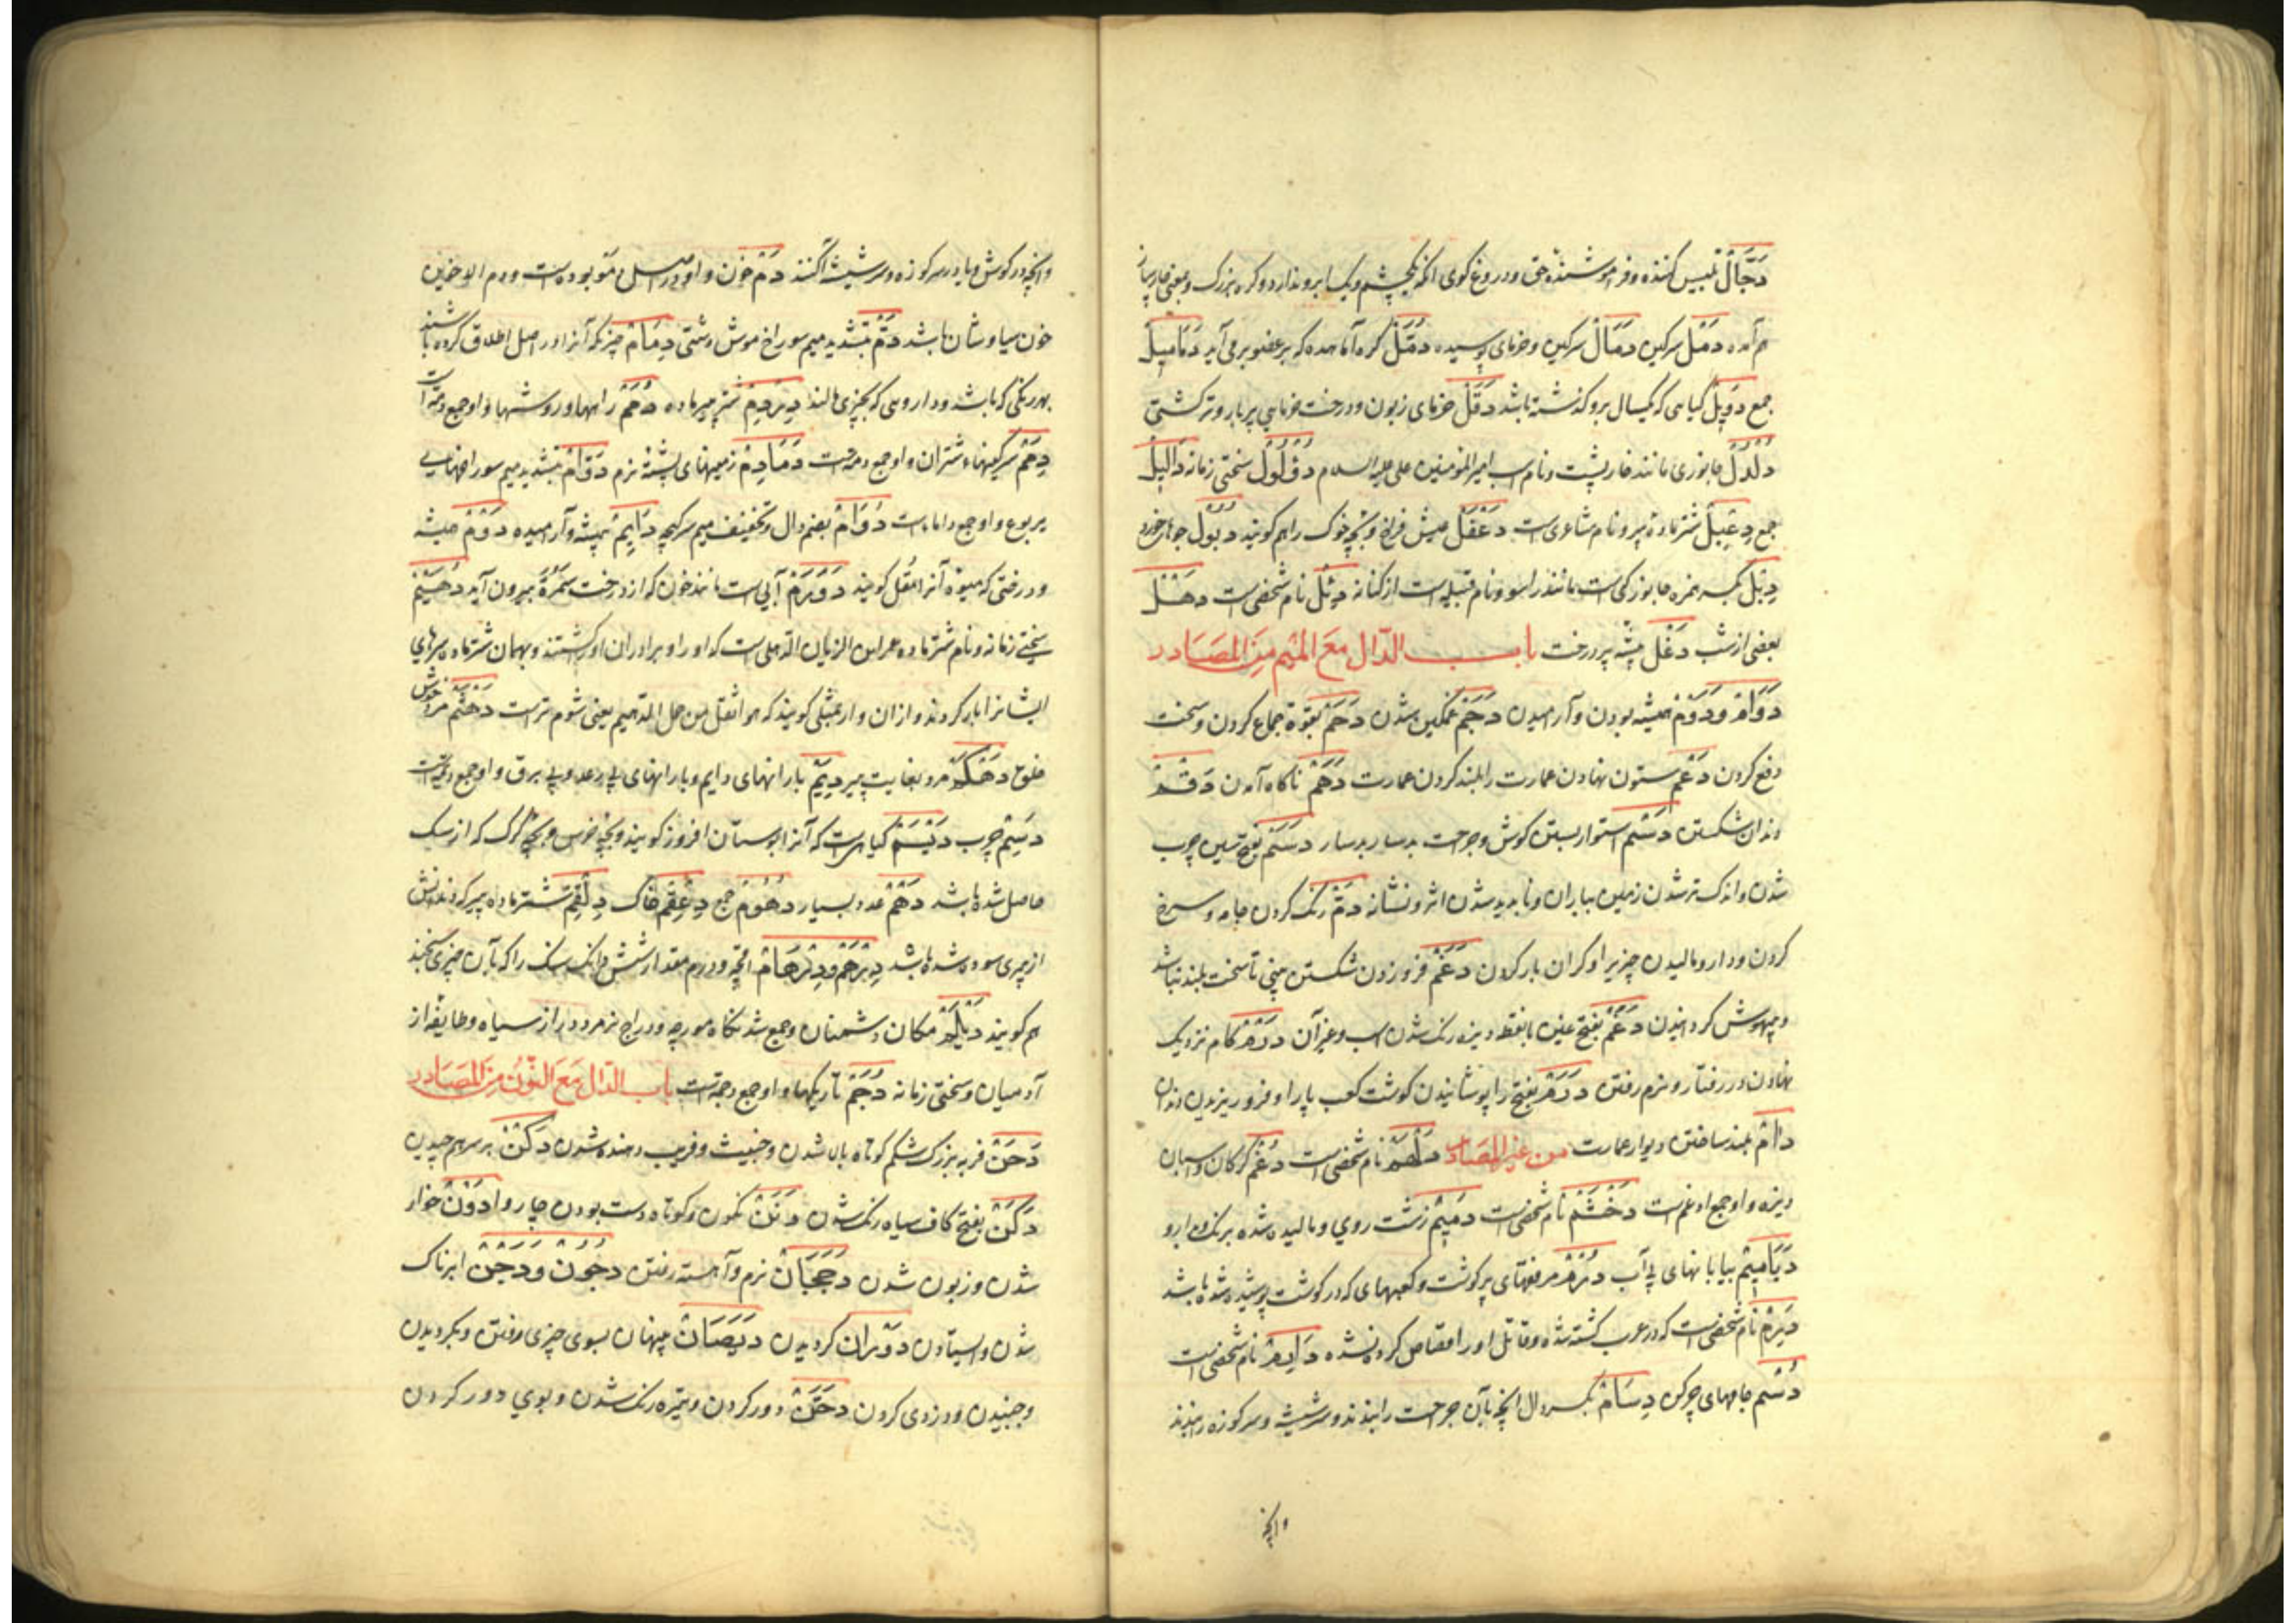 دَجَّالْ تلبیس کننده و فراموشنده حق و دروغ کوی انکه یکچشم و یک ابرو ندارد و کروه بزرک و بمعنی
هم آمده دَمْلْ سرکین دَمَالْ سرکین و خرمای پوسیده دُمَّلْ کره آماهیده که بر عضو بر می آید دَمَامِیلْ
جمع دَوِیلْ کیاهی که یکسال برو کذشته باشد دَقَلْ خرمای زبون و درخت خرمایی پر بار و تیر کشتی
دُلْدُلْ جانوری مانند خارپشت و نام اسب امیر المؤمنین علی علیه السلام دؤلول سختی زمانه دَآلِیلْ
جمع دِعْبِلْ شتر ماده پیر و نام شاعری است دَغْفَلْ عیش فراخ و بچه خوک را هم کویند دُبُولْ جوهای خورد
دِئِلْ بکسر همزه جانورکی است مانند راسو و نام قبیله است از کنانه دِئْلْ نام شخصی است دَهْلْ
بعضی از شب دَغَلْ بیشه پر درخت باب الدّال مَعَ المِیْم مِنَ المَصَادر
دَوَامْ و دَوْمْ همیشه بودن و آرامیدن دَجَمْ غمکین شدن دَحْمْ بقوة جماع کردن و سخت
دفع کردن دَعْمْ ستون نهادن عمارت را بلند کردن عمارت دَهْمْ ناکاه آمدن دَقْمْ
دندان شکستن دَسْمْ استوار بستن کوش و جرحت دَسَمْ بفتح سین چرب
شدن و اندک تر شدن زمین بباران و ناپدید شدن اثر و نشانه دَمّ رنک کردن جامه و سرخ
کردن و دارو مالیدن چیزیرا و کران بار کردن دَغْمْ فرو زدن شکستن بینی تا سخت بلند نباشد
و بیهوش کردانیدن دَغَمْ بفتح غین با نقطه دیزه رنک شدن اسب و غیر آن دَرْمْ کام نزدیک
نهادن در رفتار و نرم رفتن دَرَمْ بفتح را پوشانیدن کوشت کعب پا را و فرو ریزیدن دندان
دَأْمْ بلند ساختن دیوار عمارت من غیر المصادر نام شخصی است دُغْمْ کرکان و اسبان
دیزه و او جمع ادغم است دَخْشَمْ نام شخصیست دَمِیْمْ زشت روی و مالیده شده برنک و دارو
دَیَامِیْمْ بیابانهای بی آب دُرْمْ مرفقهای پر کوشت و کعبهای که در کوشت پوشیده شده باشد
دَرِمْ نام شخصی است که در عرب کشته شده و قاتل او را قصاص کرده نشده دَارِمْ نام شخصی است
دُسْمْ جامهای چرکن دِسَامْ بکسر دال انچه بآن جرحت را بندند و سر شیشه و سر کوزه را بندند
وانچه
وانچه در کوش و یا در سر کوزه و سر شیشه آکنند دَمْ خون و او در اصل دمو بوده است و دم الاخوین
خون سیاوشان باشد دَمّ بتشدید میم سوراخ موش دشتی دِمَامْ چیزیکه آنرا در اصل اطلاق کرده باشند
بهر رنکی که باشد و داروهی که بچیزی مالند دِرْدِمْ شتر پیر ماده دُمَمْ راهها و روشها و او جمع دمّه است
دِمَمْ سرکینهاء شتران و او جمع دمه است دَمَادِمْ زمینهای پشته نرم دَوَّامْ بتشدید میم سوراخهای
یربوع و او جمع داماء است دُوَامْ بضم دال و تخفیف میم سرکیجه دَایِمْ همیشه و آرامیده دَوْمْ همیشه
و درختی که میوه آنرا مُقل کویند دَوْدَمْ آبی است مانند خون که از درخت سَمُرَة بیرون آید دُهَیْمْ
سختی زمانه و نام شتر ماده عمر ابن الزبان الذهلی است که او را و برادران او را کشتند و بهمان شتر ماده سرهای
ایشانرا بار کردند و از ان وار عبتلی کویند که هو اثقل من حمل الدهیم یعنی شوم تر است دَهْثَمْ مرد خوش
خلق دَهْکَمْ مرد بغایت پیر دِیَمْ بارانهای دایم و بارانهای بی رعد و بی برق و او جمع دیمه است
دَسِمْ چرب دَیْسَمْ کیاهی است که آنرا بوستان افروز کویند و بچه خرس و بچه کرک که از سک
حاصل شده باشد دَهْمْ عدد بسیار دُهُومْ جمع دِعْقِمْ خاک دِلْقِمْ شتر ماده پیر که دندانش
از پیری سوده شده باشد دِرْهَمْ و دِرْهَامْ اقچه و درم مقدار شش دانک سنک را که بآن چیزی سنجند
هم کویند دَیْلَمْ مکان دشمنان و جمع شدنکاه مورچه و دراج نر مرد دراز سیاه و طایفه از
آدمیان و سختی زمانه دُجَمْ تاریکیها و او جمع دجمه است باب الدّال مَعَ النُّون مِنَ المَصَادر
دَحَنْ فربه بزرک شکم کوتاه بالا شدن و خبیث و فریب دهنده شدن دَکْنْ بر سر هم چیدن
دَکَنْ بفتح کاف سیاه رنک شدن دَنَنْ نکون و کوتاه دست بودن چاروا دَوْنْ خوار
شدن و زبون شدن دَجَجَانْ نرم و آهسته رفتن دُجُونْ و دَجْنْ ابرناک
شدن و ایستادن دَوَرَان کردیدن دَیَصَانْ پنهان بسوی چیزی رفتن و بکردیدن
و جنبیدن و دزدی کردن دَخَنْ دور کردن و تیره رنک شدن و بوی دور کردن